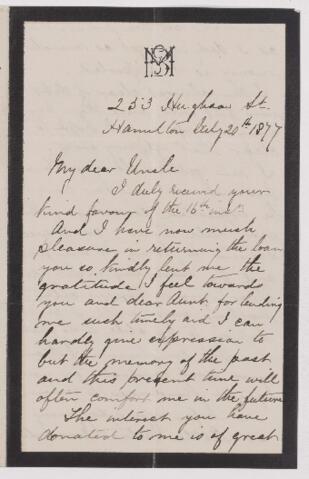 253 Hughson St.
Hamilton July 20th 1877
My dear Uncle
I duly received your
kind favour of the 16th inst
And I have now much
pleasure in returning the loan
you so kindly lent me the
gratitude I feel towards
you and dear Aunt for lending
me such timely aid I can
hardly give expression to
but the memory of the past
and this present time will
often comfort me in the future
The interest you have
donated to me is of great